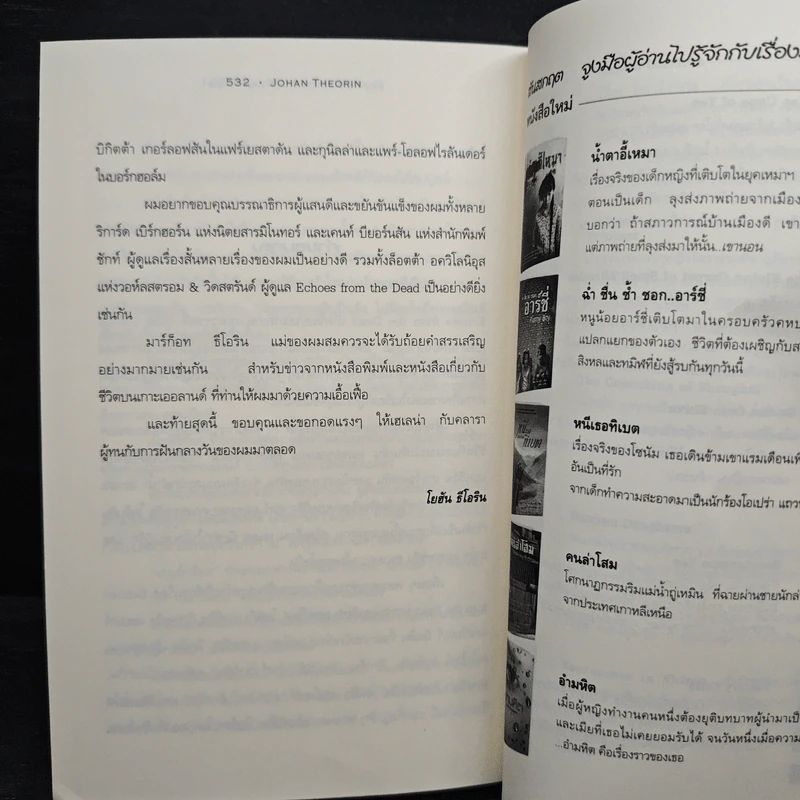 532 • JOHAN THEORIN
บิกิตต้า เกอร์ลอฟสันในแฟร์เยสตาดัน และกุนิลล่าและแพร์-โอลอฟไรลันเดอร์
ในบอร์กฮอล์ม
ผมอยากขอบคุณบรรณาธิการผู้แสนดีและขยันขันแข็งของผมทั้งหลาย
ริการ์ด เบิร์กฮอร์น แห่งนิตยสารมิโนทอร์ และเคนท์ บียอร์นสัน แห่งสำนักพิมพ์
ชักท์ ผู้ดูแลเรื่องสั้นหลายเรื่องของผมเป็นอย่างดี รวมทั้งล็อตต้า อควิโลนิอุส
แห่งวอห์ลสตรอม & วิดสตรันด์ ผู้ดูแล Echoes from the Dead เป็นอย่างดียิ่ง
เช่นกัน
มาร์ก็อท ธีโอริน แม่ของผมสมควรจะได้รับถ้อยคำสรรเสริญ
อย่างมากมายเช่นกัน สำหรับข่าวจากหนังสือพิมพ์และหนังสือเกี่ยวกับ
ชีวิตบนเกาะเออลานด์ ที่ท่านให้ผมมาด้วยความเอื้อเฟื้อ
และท้ายสุดนี้ ขอบคุณและขอกอดแรงๆ ให้เฮเลน่า กับคลารา
ผู้ทนกับการฝันกลางวันของผมมาตลอด
โยฮัน ธีโอริน
จูงมือผู้อ่านไปรู้จักกับเรื่อง
หนังสือใหม่
น้ำตาอี้เหมา
เรื่องจริงของเด็กหญิงที่เติบโตในยุคเหมาฯ
ตอนเป็นเด็ก ลุงส่งภาพถ่ายจากเมือง
บอกว่า ถ้าสภาวการณ์บ้านเมืองดี เขา
แต่ภาพถ่ายที่ลุงส่งมาให้นั้น..เขานอน
ฉ่ำ ชื่น ช้ำ ชอก..อาร์ชี่
หนูน้อยอาร์ชี่เติบโตมาในครอบครัวคหบ
แปลกแยกของตัวเอง ชีวิตที่ต้องเผชิญกับส
สิงหลและทมิฬที่ยังสู้รบกันทุกวันนี้
อาร์ชี่
หนีเธอทิเบต
เรื่องจริงของโซนัม เธอเดินข้ามเขาแรมเดือนเพื
อันเป็นที่รัก
จากเด็กทำความสะอาดมาเป็นนักร้องโอเปร่า แถวห
คนล่าโสม
โศกนาฏกรรมริมแม่น้ำถู่เหมิน ที่ฉายผ่านชายนักล่
จากประเทศเกาหลีเหนือ
อำมหิต
เมื่อผู้หญิงทำงานคนหนึ่งต้องยุติบทบาทผู้นำมาเป็
และเมียที่เธอไม่เคยยอมรับได้ จนวันหนึ่งเมื่อความ
...อำมหิต คือเรื่องราวของเธอ